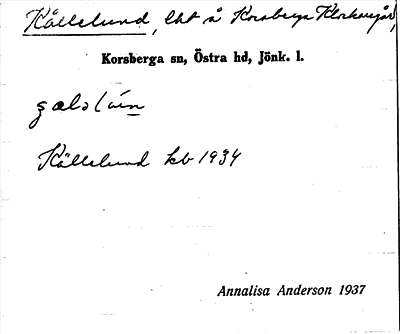 Källelund, lht å Korsberga Klockaregård,
Korsberga sn, Östra hd, Jönk. l.
Källelund kb 1934
Annalisa Anderson 1937